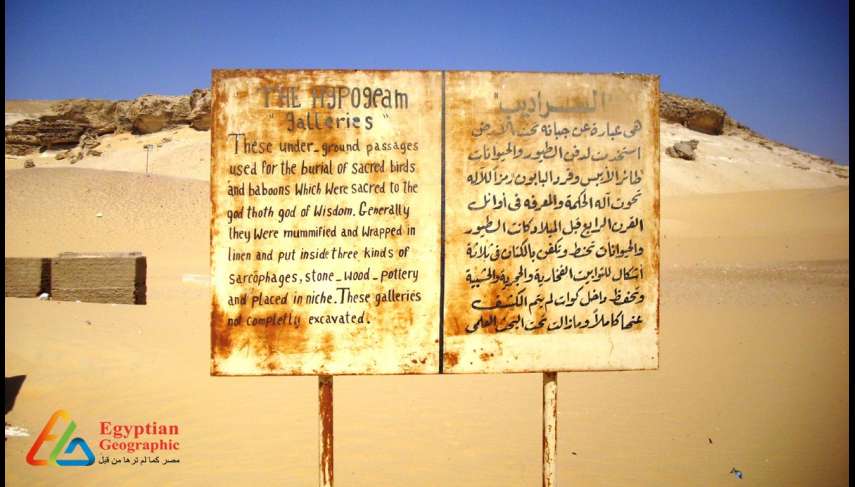 THE HypOgeam
"galleries"
These under_ground passages
used for the burial of sacred birds
and baboons Which Were sacred to the
god thoth god of Wisdom. Generally
they Were mummified and Wrapped in
linen and put inside three kinds of
sarcophages, stone_wood_pottery
and placed in niche. These galleries
not completly excavated.
"السراديب"
هى عبارة عن جبانه تحت الارض
استخدمت لدفن الطيور والحيوانات
طائر الأيبس وقرد البابون رمزا للاله
تحوت آله الحكمة والمعرفه فى أوائل
القرن الرابع قبل الميلاد كانت الطيور
والحيوانات تحنط وتكفن بالكتان فى ثلاثة
أشكال للتوابيت الفخارية والحجرية والخشبية
وتحفظ داخل كوات لم يتم الكشف
عنها كاملاً ومازالت تحت البحث العلمى
Egyptian
Geographic
مصر كما لم ترها من قبل